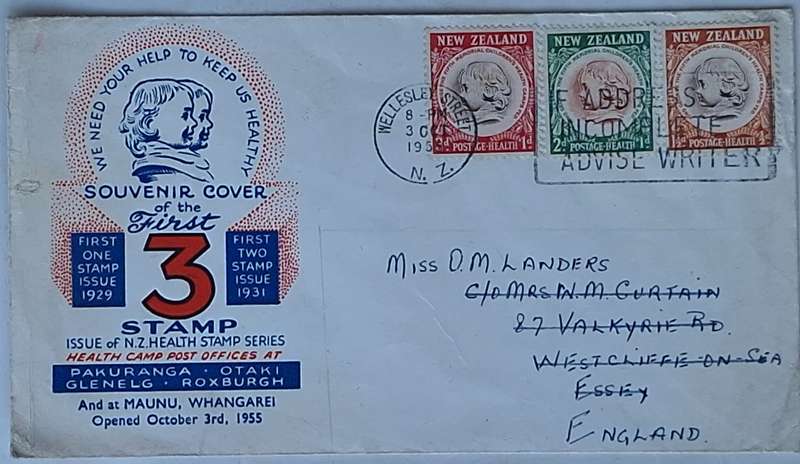 WE NEED YOUR HELP TO KEEP US HEALTHY
SOUVENIR COVER
of the
First
3
STAMP
FIRST
ONE
STAMP
ISSUE
1929
FIRST
TWO
STAMP
ISSUE
1931
ISSUE of N.Z. HEALTH STAMP SERIES
HEALTH CAMP POST OFFICES AT
PAKURANGA · OTAKI
GLENELG · ROXBURGH
And at MAUNU, WHANGAREI
Opened October 3rd, 1955
NEW ZEALAND
POSTAGE-HEALTH 1d
NEW ZEALAND
2d POSTAGE-HEALTH 1d
NEW ZEALAND
POSTAGE-HEALTH
WELLESLEY STREET
8 - PM
3 OC
195
N. Z.
IF ADDRESS
INCOMPLETE
ADVISE WRITER
MISS D. M. LANDERS
C/O MRS W. M. CURTAIN
87 VALKYRIE RD.
WESTCLIFFE-ON-SEA
ESSEX
ENGLAND.